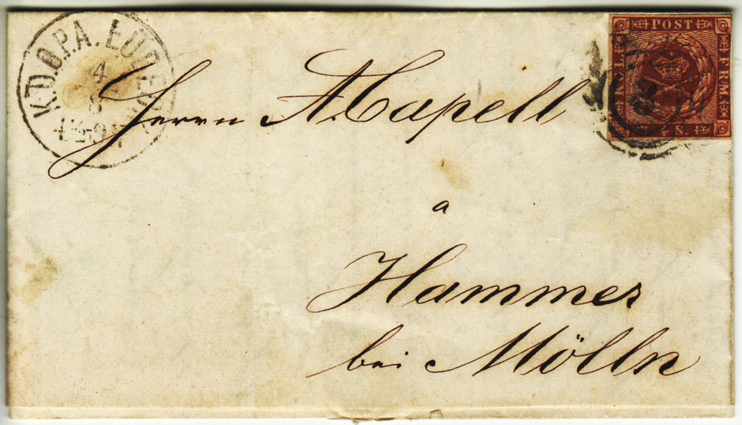 K.D.O.P.A. LÜBECK
4
8
POST
FRM
4 S.
Herrn A Capell
a
Hammer
bei Mölln